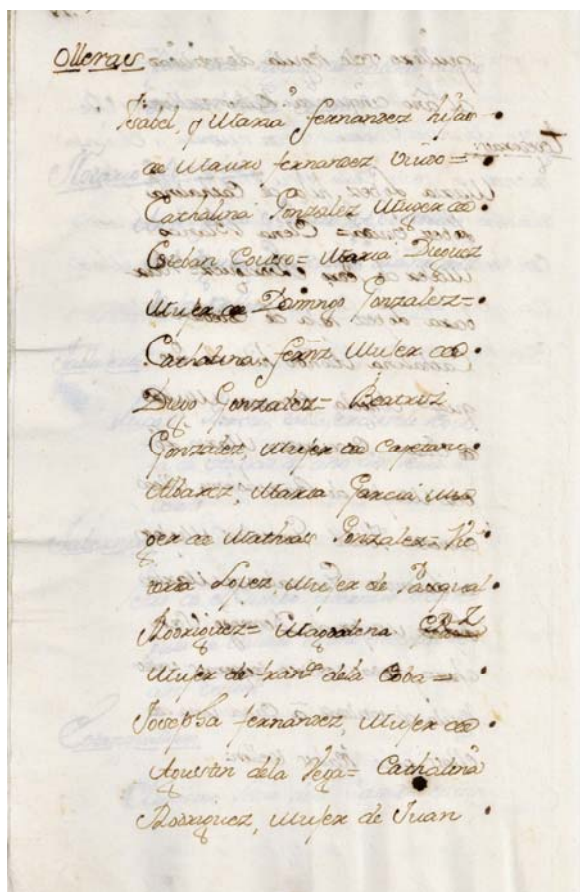 Olleras
Ysabel, y Maria fernandez hijas
de Mauro fernandez Viudo =
Cathalina Gonzalez Mujer de
Esteban Couso = Maria Dieguez
Mujer de Domingo Gonzalez =
Cathalina fernz Mujer de
Diego Gonzalez = Beatriz
Gonzalez, Mujer de Cayetano
Albarez, Maria Garcia Mu
ger de Mathias Gonzalez = Vic
toria Lopez, Mujer de Pasqual
Rodriguez = Magdalena
Mujer de fran.co de la Coba =
Josepha fernandez, Mujer de
Agustin de la Vega = Cathalina
Rodriguez, Mujer de Juan